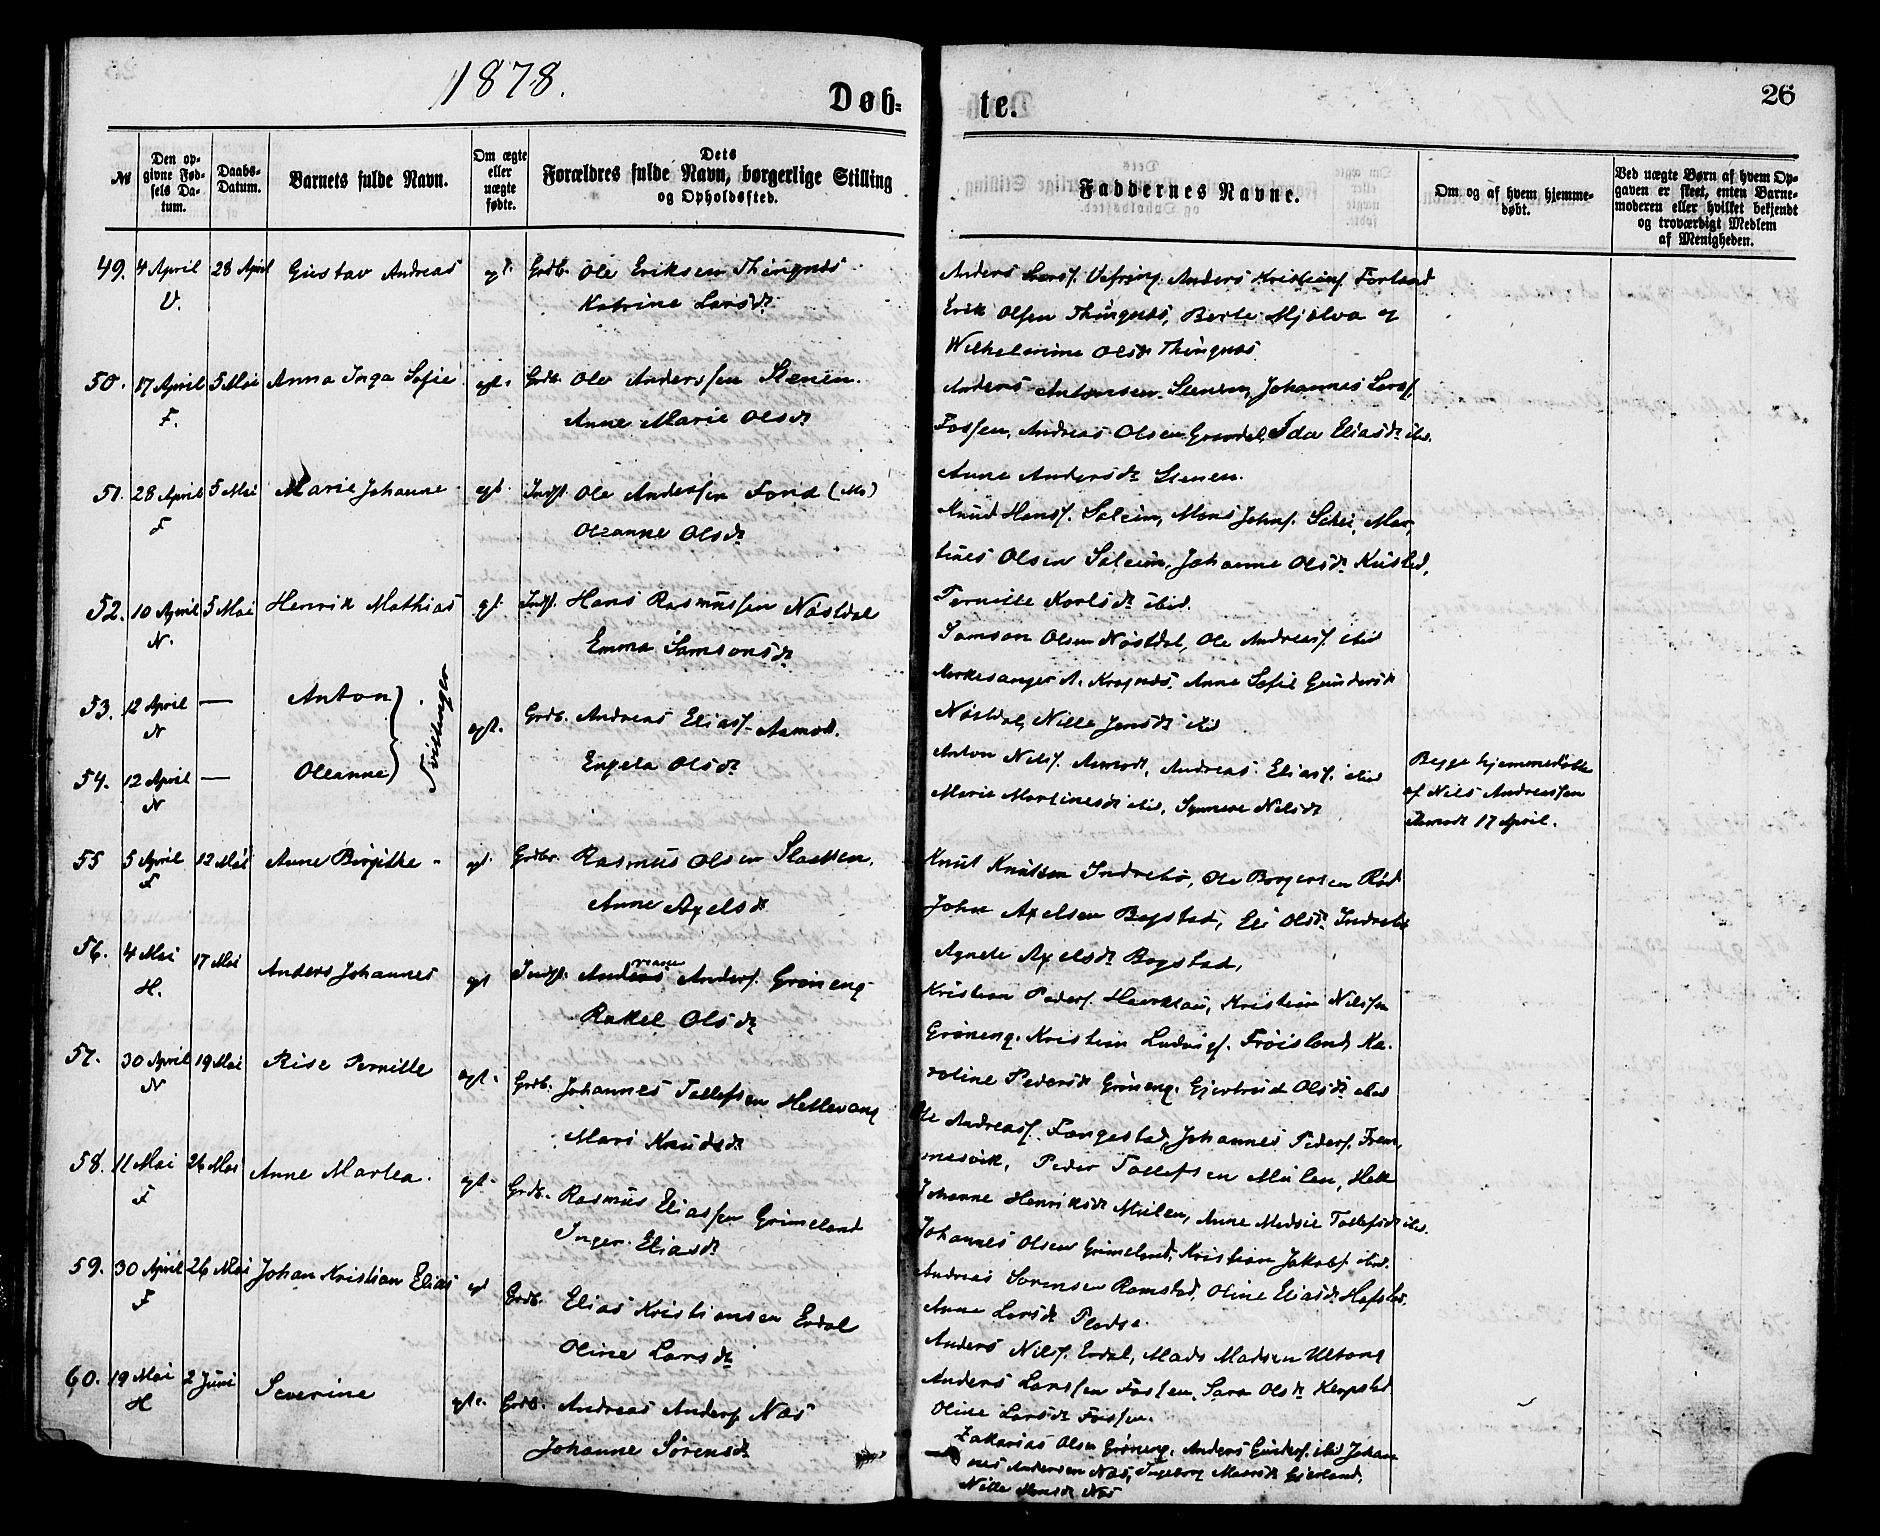 1878.
Døb-
te.
26
№
Den op-
givne Fød-
sels Da-
tum.
Daabs-
Datum.
Barnets fulde Navn.
Om ægte
eller
uægte
fødte.
Dets
Forældres fulde Navn, borgerlige Stilling
og Opholdssted.
Faddernes Navne.
Om og af hvem hjemme-
døbt.
Ved uægte Børn af hvem Op-
gaven er skeet, enten Barne-
moderen eller hvilket bekjendt
og troværdigt Medlem
af Menigheden.
49. 4 April 28 April Gustav Andreas Grdb. Ole Eriksen Thingnæs
V. Katrine Larsd.
Anders Larss. Vefring, Anders Kristians. Førland
Erik Olsen Thingnæs, Berte Mjølva og
Wilhelmine Olsd. Thingnæs
50. 17 April 5 Mai Anna Inga Sofie egt. Grdb. Ole Anderssen Stenen.
F. Anne Marie Olsd.
Anders Antonsen Stenen, Johannes Larss.
Fossen, Andreas Olsen, Ida Eliasd. ibid.
Anne Andersd. Stenen.
51. 28 April 5 Mai Marie Johanne egt. Indst. Ole Anderssen Fond
F Oleanne Olsd.
Knud Hanss. Soleim, Mons Johns. Mar-
tines Olsen Soleim, Johanne Olsd.
Pernille Karlsd. ibid.
52. 10 April 5 Mai Henrik Mathias gt. Indst. Hans Rasmussen Nøstdal
N. Emma Samsonsd.
Samson Olsen Nøstdal, Ole Andreass. ibid
Kirkesanger A. Anne Sofie Gundersd.
Nøstdal, Nille Jensd. ibid
53. 12 April — Anton
N
Tvillinger
egt. Grdb. Andreas Eliass. Aamot.
Engela Olsd.
54. 12 April — Oleanne
N
Anton Nilss. Aamot, Andreas Eliass. ibid
Marie Martinesd. ibid, Synneve Nilsd.
Begge hjemmedøbte
af Nils Andreassen
Aamot 17 April.
55 5 April 12 Mai Anne Birgitte gt. Grdbr. Rasmus Olsen Stakken.
F Anne Axelsd.
Knut Knutsen Indrebø, Ole Borgersen
John Axelsen Bogstad, Eli Olsd. Indrebø
Agnete Axelsd. Bogstad,
56. 4 Mai 17 Mai Anders Johannes gt Indst. Anders. Grøneng
H. Rakel Olsd.
Kristian Peders. Kristian Nilssen
Grøneng. Kristian Ludvigs. Frøisland, Ka-
roline Pedersd. Grøneng. Gjertrud Olsd. ibid
57. 30 April 19 Mai Rise Pernille egt. Grdb. Johannes Tollefsen Hellevang
N Mari Knudsd.
Ole Andreass. Fangestad, Johannes Peders. Frem-
mesvik, Peder Tollefsen Mulen,
Johanne Henriksd. Mulen, Anne Tollefsd. ibid.
58. 11 Mai 26 Mai Anne Martea. egt. Grdb. Rasmus Eliassen Grimeland
F Inger Eliasd.
Johannes Olsen Grimeland, Kristian Jakobs. ibid.
Andreas Sørensen Ramstad, Oline Eliasd. Hafstad,
Anne Larsd.
59. 30 April 26 Mai Johan Kristian Elias egt Grdb. Elias Kristiansen Erdal
F Oline Larsd.
Anders Nilss. Erdal, Mads Madsen Ullvang
Anders Larssen Fossen, Sara Olsd.
Oline Larsd. Fossen.
60. 19 Mai 2 Juni Severine egt. Grdb. Andreas Anders. Næs
H Johanne Sørensd.
Zakarias Olsen Grøneng, Anders Gunders. ibid Johan-
nes Andersen Næs, Ingeborg Gjerland,
Nille Næs